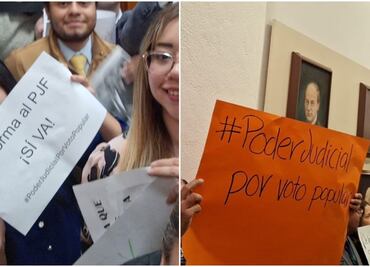 orma al PJF
¡SÍ VA!
#PoderJudicialPorVotoPopular
A QUE
#PoderJudicial
por voto popular